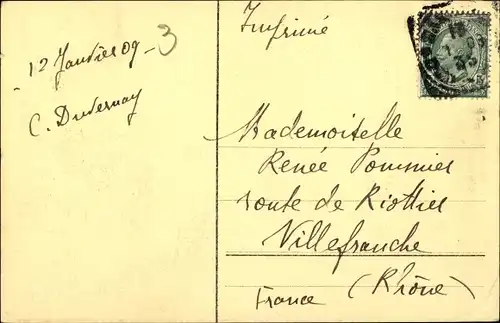 Imprimé
- 12 Janvier 09 -
3
C. Duvernay
Mademoiselle
Renée Pommier
route de Riottier
Villefranche
(Rhône)
France